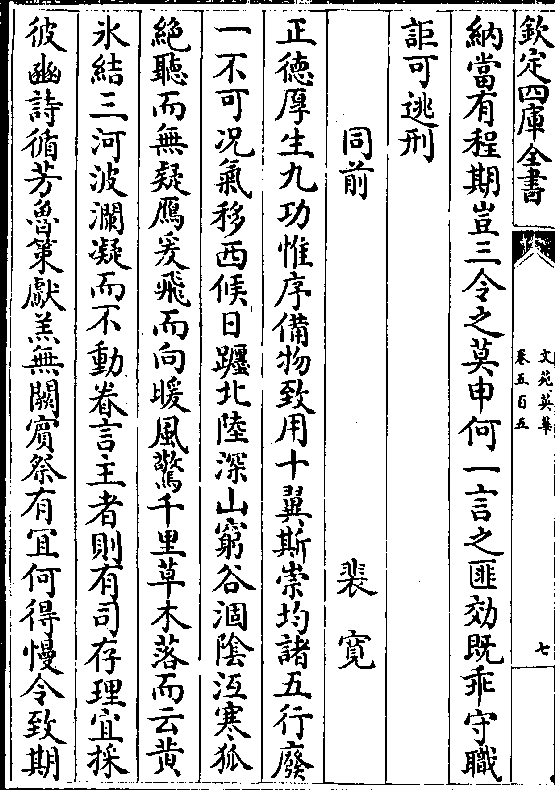 欽定四庫全書
文苑英華
卷五百五
七
納當有程期豈三令之莫申何一言之匪効既乖守職
詎可逃刑
同前
裴寛
正德厚生九功惟序備物致用十翼斯崇均諸五行廢
一不可况氣移西候日躔北陸深山窮谷涸陰沍寒狐
絶聽而無疑鴈爰飛而向暖風驚千里草木落而云黄
氷結三河波瀾凝而不動眷言主者則有司存理宜採
彼豳詩循芳魯策獻羔無闕賓祭有冝何得慢令致期